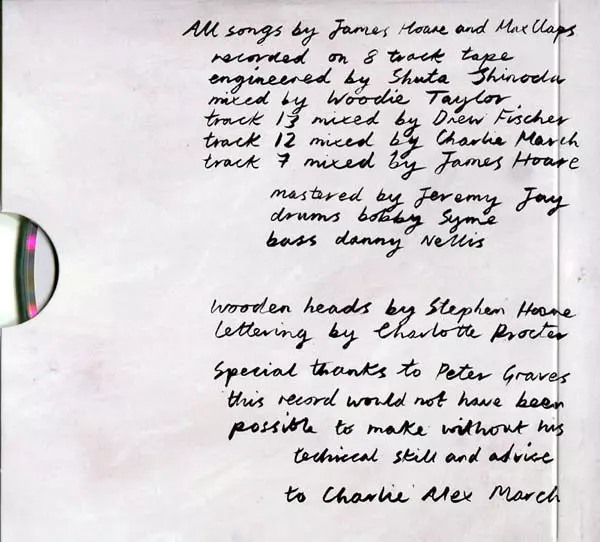 All songs by James Hoare and Max Claps
recorded on 8 track tape
engineered by Shuta Shinoda
mixed by Woodie Taylor
track 13 mixed by Drew Fischer
track 12 mixed by Charlie March
track 7 mixed by James Hoare
mastered by Jeremy Jay
drums bobby Syme
bass danny Nellis
wooden heads by Stephen Hoare
lettering by Charlotte Procter
Special thanks to Peter Graves
this record would not have been
possible to make without his
techincal skill and advise
to Charlie Alex March